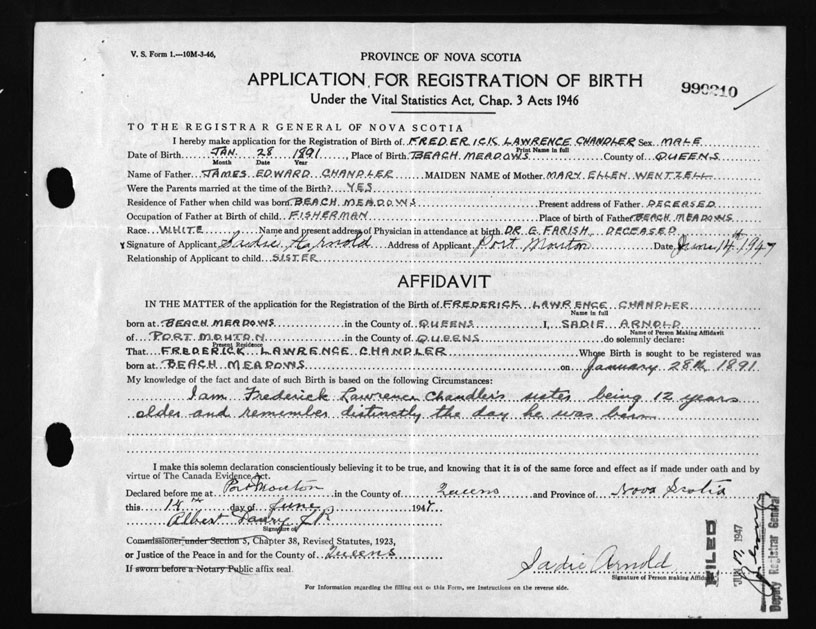 V. S. Form 1.—10M-3-46,
PROVINCE OF NOVA SCOTIA
APPLICATION FOR REGISTRATION OF BIRTH
990210
Under the Vital Statistics Act, Chap. 3 Acts 1946
TO THE REGISTRAR GENERAL OF NOVA SCOTIA
I hereby make application for the Registration of Birth of FREDERICK LAWRENCE CHANDLER Sex MALE
Print Name in full
Date of Birth JAN. 28 1891, Place of Birth BEACH MEADOWS County of QUEENS
Month Date Year
Name of Father JAMES EDWARD CHANDLER MAIDEN NAME of Mother MARY ELLEN WENTZELL
Were the Parents married at the time of the Birth? YES
Residence of Father when child was born BEACH MEADOWS Present address of Father DECEASED
Occupation of Father at Birth of child FISHERMAN Place of birth of Father BEACH MEADOWS
Race WHITE Name and present address of Physician in attendance at birth DR G. FARISH DECEASED
Signature of Applicant Sadie Arnold Address of Applicant Port Mouton Date June 14th 1947
Relationship of Applicant to child SISTER
AFFIDAVIT
IN THE MATTER of the application for the Registration of the Birth of FREDERICK LAWRENCE CHANDLER
Name in full
born at BEACH MEADOWS in the County of QUEENS I, SADIE ARNOLD
Name of Person Making Affidavit
of PORT MOUTON in the County of QUEENS do solemnly declare:
Present Residence
That FREDERICK LAWRENCE CHANDLER Whose Birth is sought to be registered was
born at BEACH MEADOWS on January 28th 1891
My knowledge of the fact and date of such Birth is based on the following Circumstances:
I am Frederick Lawrence Chandler's sister being 12 years
older and remember distinctly the day he was born
I make this solemn declaration conscientiously believing it to be true, and knowing that it is of the same force and effect as if made under oath and by
virtue of The Canada Evidence Act.
Declared before me at Port Mouton in the County of Queens and Province of Nova Scotia
this 14th day of June 1947
Albert
Signature of
Commissioner, under Section 5, Chapter 38, Revised Statutes, 1923,
or Justice of the Peace in and for the County of Queens
If sworn before a Notary Public affix seal.
Sadie Arnold
Signature of Person making Affidavit
For Information regarding the filling out of this Form, see Instructions on the reverse side.
FILED
1947
Deputy Registrar General